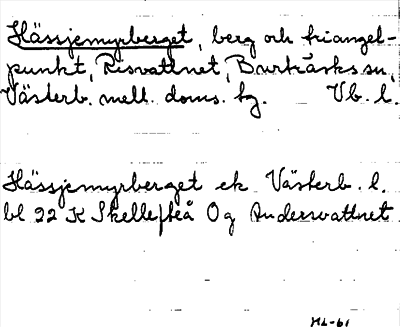 Hässjemyrberget, berg och triangel-
punkt, Risvattnet, Burträsks sn,
Västerb. mell. doms. tg. Vb. l.
Hässjemyrberget ek Västerb. l.
bl 22 K Skellefteå Og Andersvattnet
HL-61